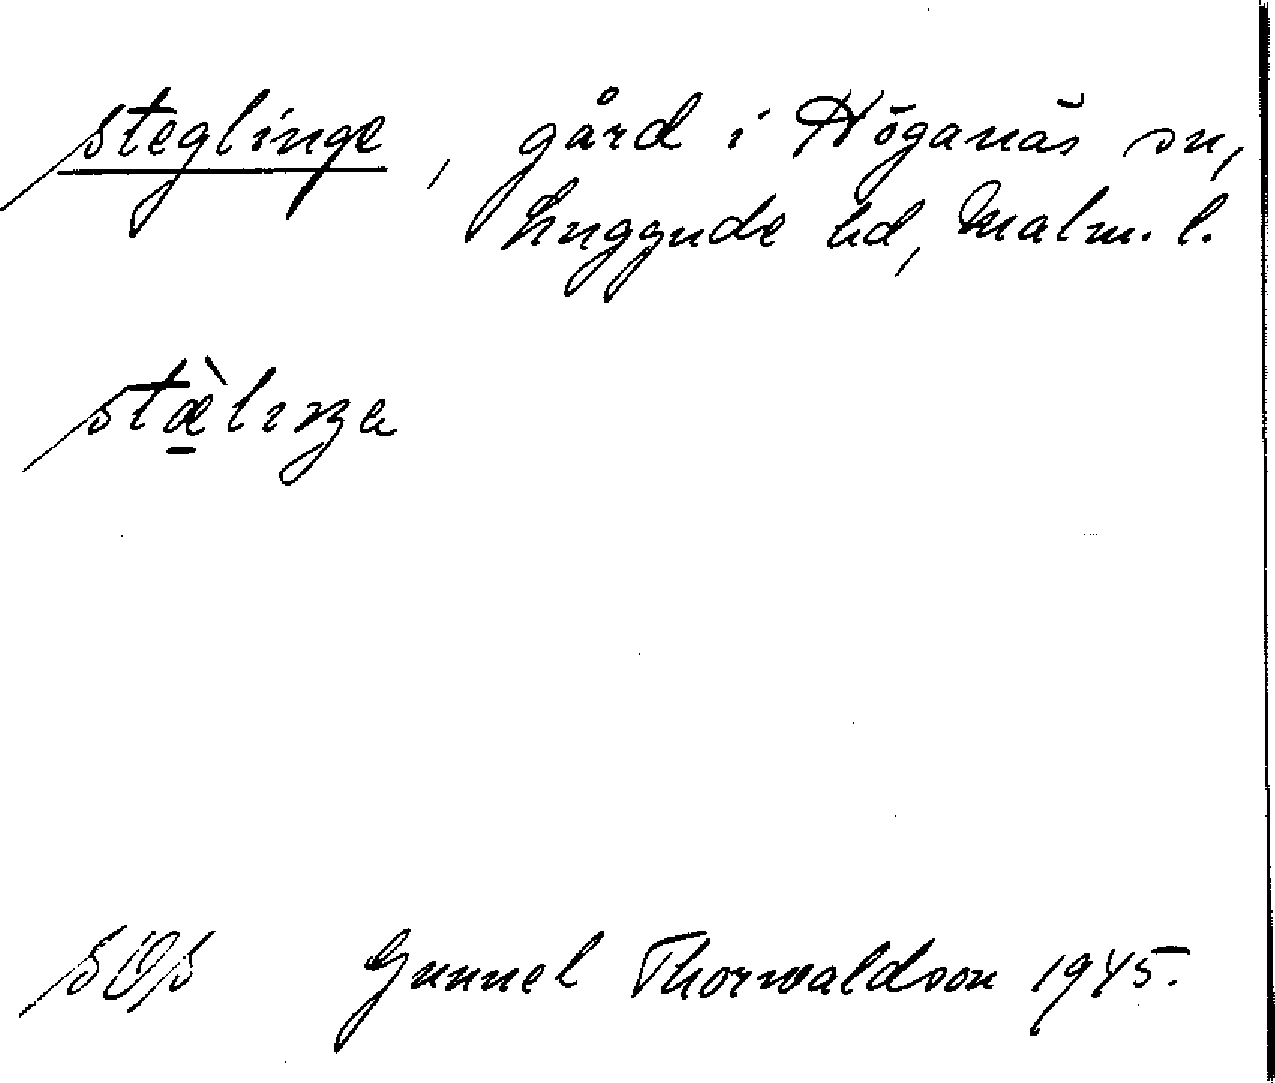 Steglinge, gård i Höganäs sn,
Luggude hd, Malm. l.
stæ̠̀lıŋa
SOS Gunnel Thorwaldson 1945.